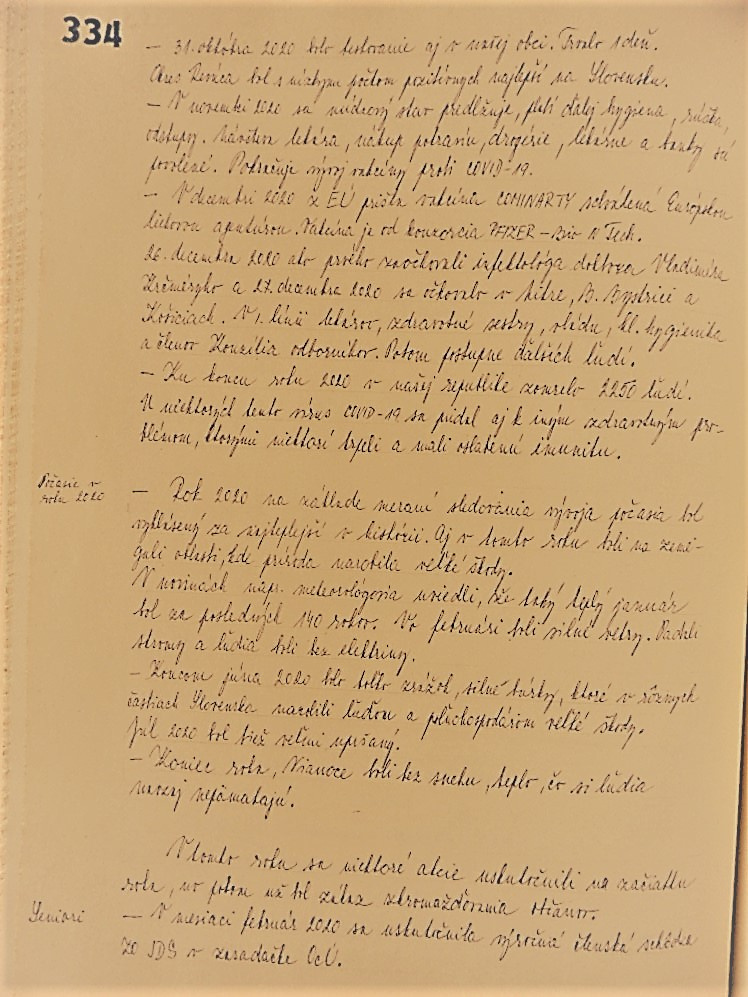 334
— 31. októbra 2020 bolo testovanie aj v našej obci. Trvalo 1 deň.
Okres Revúca bol s nízkym počtom pozitívnych najlepší na Slovensku.
— V novembri 2020 sa núdzový stav predlžuje, platí ďalej hygiena, rúška,
odstupy. Návšteva lekára, nákup potravín, drogérie, lekárne a banky sú
povolené. Pokračuje vývoj vakcíny proti COVID-19.
— V decembri 2020 z EÚ prišla vakcína COMINARTY schválená Európskou
liekovou agentúrou. Vakcína je od konzorcia PFIZER – Bio N Tech.
26. decembra 2020 ako prvého zaočkovali infektológa doktora Vladimíra
Krčméryho a 27. decembra 2020 sa očkovalo v Nitre, B. Bystrici a
Košiciach. V 1. línii lekárov, zdravotné sestry, vládu, hl. hygienika
a členov Konzília odborníkov. Potom postupne ďalších ľudí.
— Ku koncu roku 2020 v našej republike zomrelo 2250 ľudí.
U niektorých tento vírus COVID-19 sa pridal aj k iným zdravotným pro-
blémom, ktorými niektorí trpeli a mali oslabenú imunitu.
Počasie v
roku 2020
— Rok 2020 na základe meraní sledovania vývoja počasia bol
vyhlásený za najteplejší v histórii. Aj v tomto roku boli na zeme-
guli oblasti, kde príroda narobila veľké škody.
V novinách napr. meteorológovia uviedli, že taký teplý január
bol za posledných 140 rokov. Vo februári boli silné vetry. Padali
stromy a ľudia boli bez elektriny.
— Koncom júna 2020 bolo toľko zrážok, silné búrky, ktoré v rôznych
častiach Slovenska narobili ľuďom a poľnohospodárom veľké škody.
Júl 2020 bol tiež veľmi upršaný.
— Koniec roka, Vianoce boli bez snehu, teplo, čo si ľudia
naozaj nepamätajú.
V tomto roku sa niektoré akcie uskutočnili na začiatku
roka, no potom už bol zákaz zhromažďovania občanov.
Seniori
— V mesiaci február 2020 sa uskutočnila výročná členská schôdza
ZO JDS v zasadačke OcÚ.